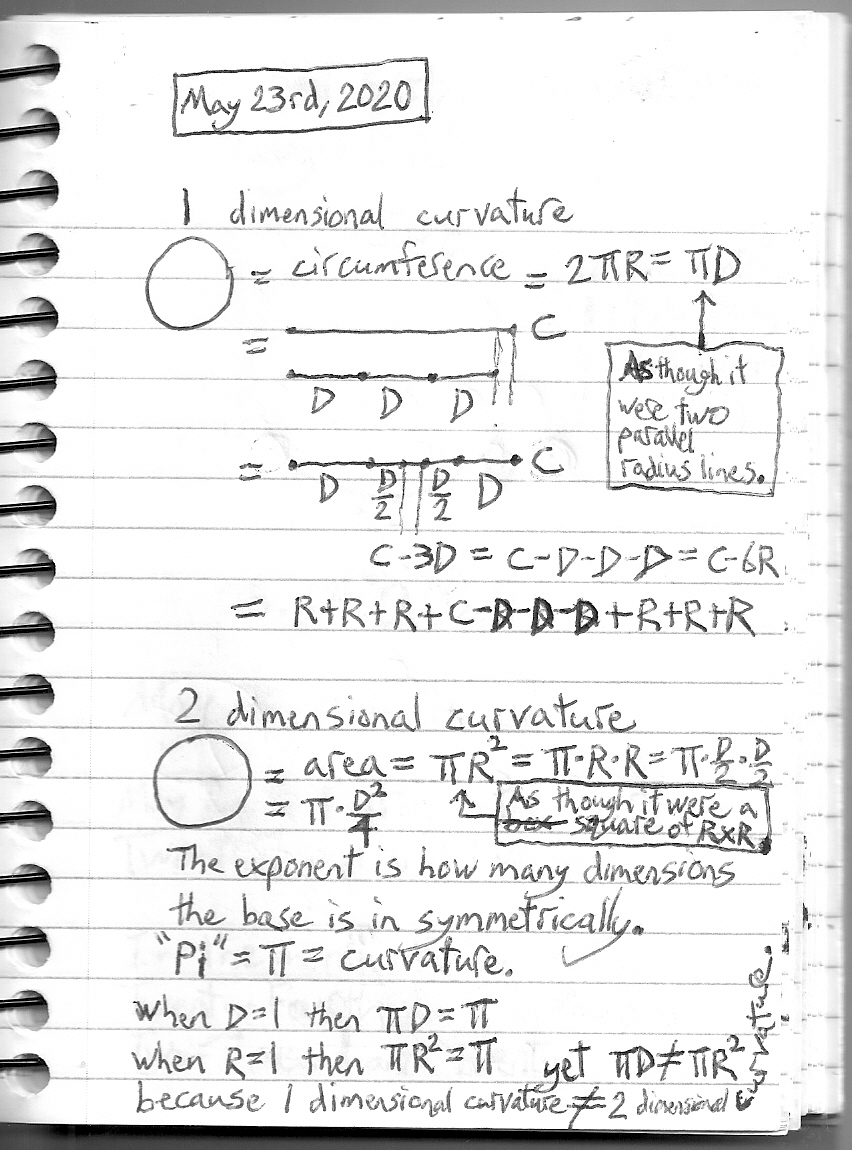 May 23rd, 2020
1 dimensional curvature
= circumference = 2πR = πD
= C
D D D
As though it
were two
parallel
radius lines.
= C
D D/2 D/2 D
C-3D = C-D-D-D = C-6R
= R+R+R+C-D-D-D+R+R+R
2 dimensional curvature
= area = πR² = π·R·R = π·D/2·D/2
= π·D²/4
As though it were a
square of RxR.
The exponent is how many dimensions
the base is in symmetrically.
"Pi" = π = curvature.
when D=1 then πD=π
when R=1 then πR²=π yet πD≠πR²
because 1 dimensional curvature ≠ 2 dimensional
curvature.